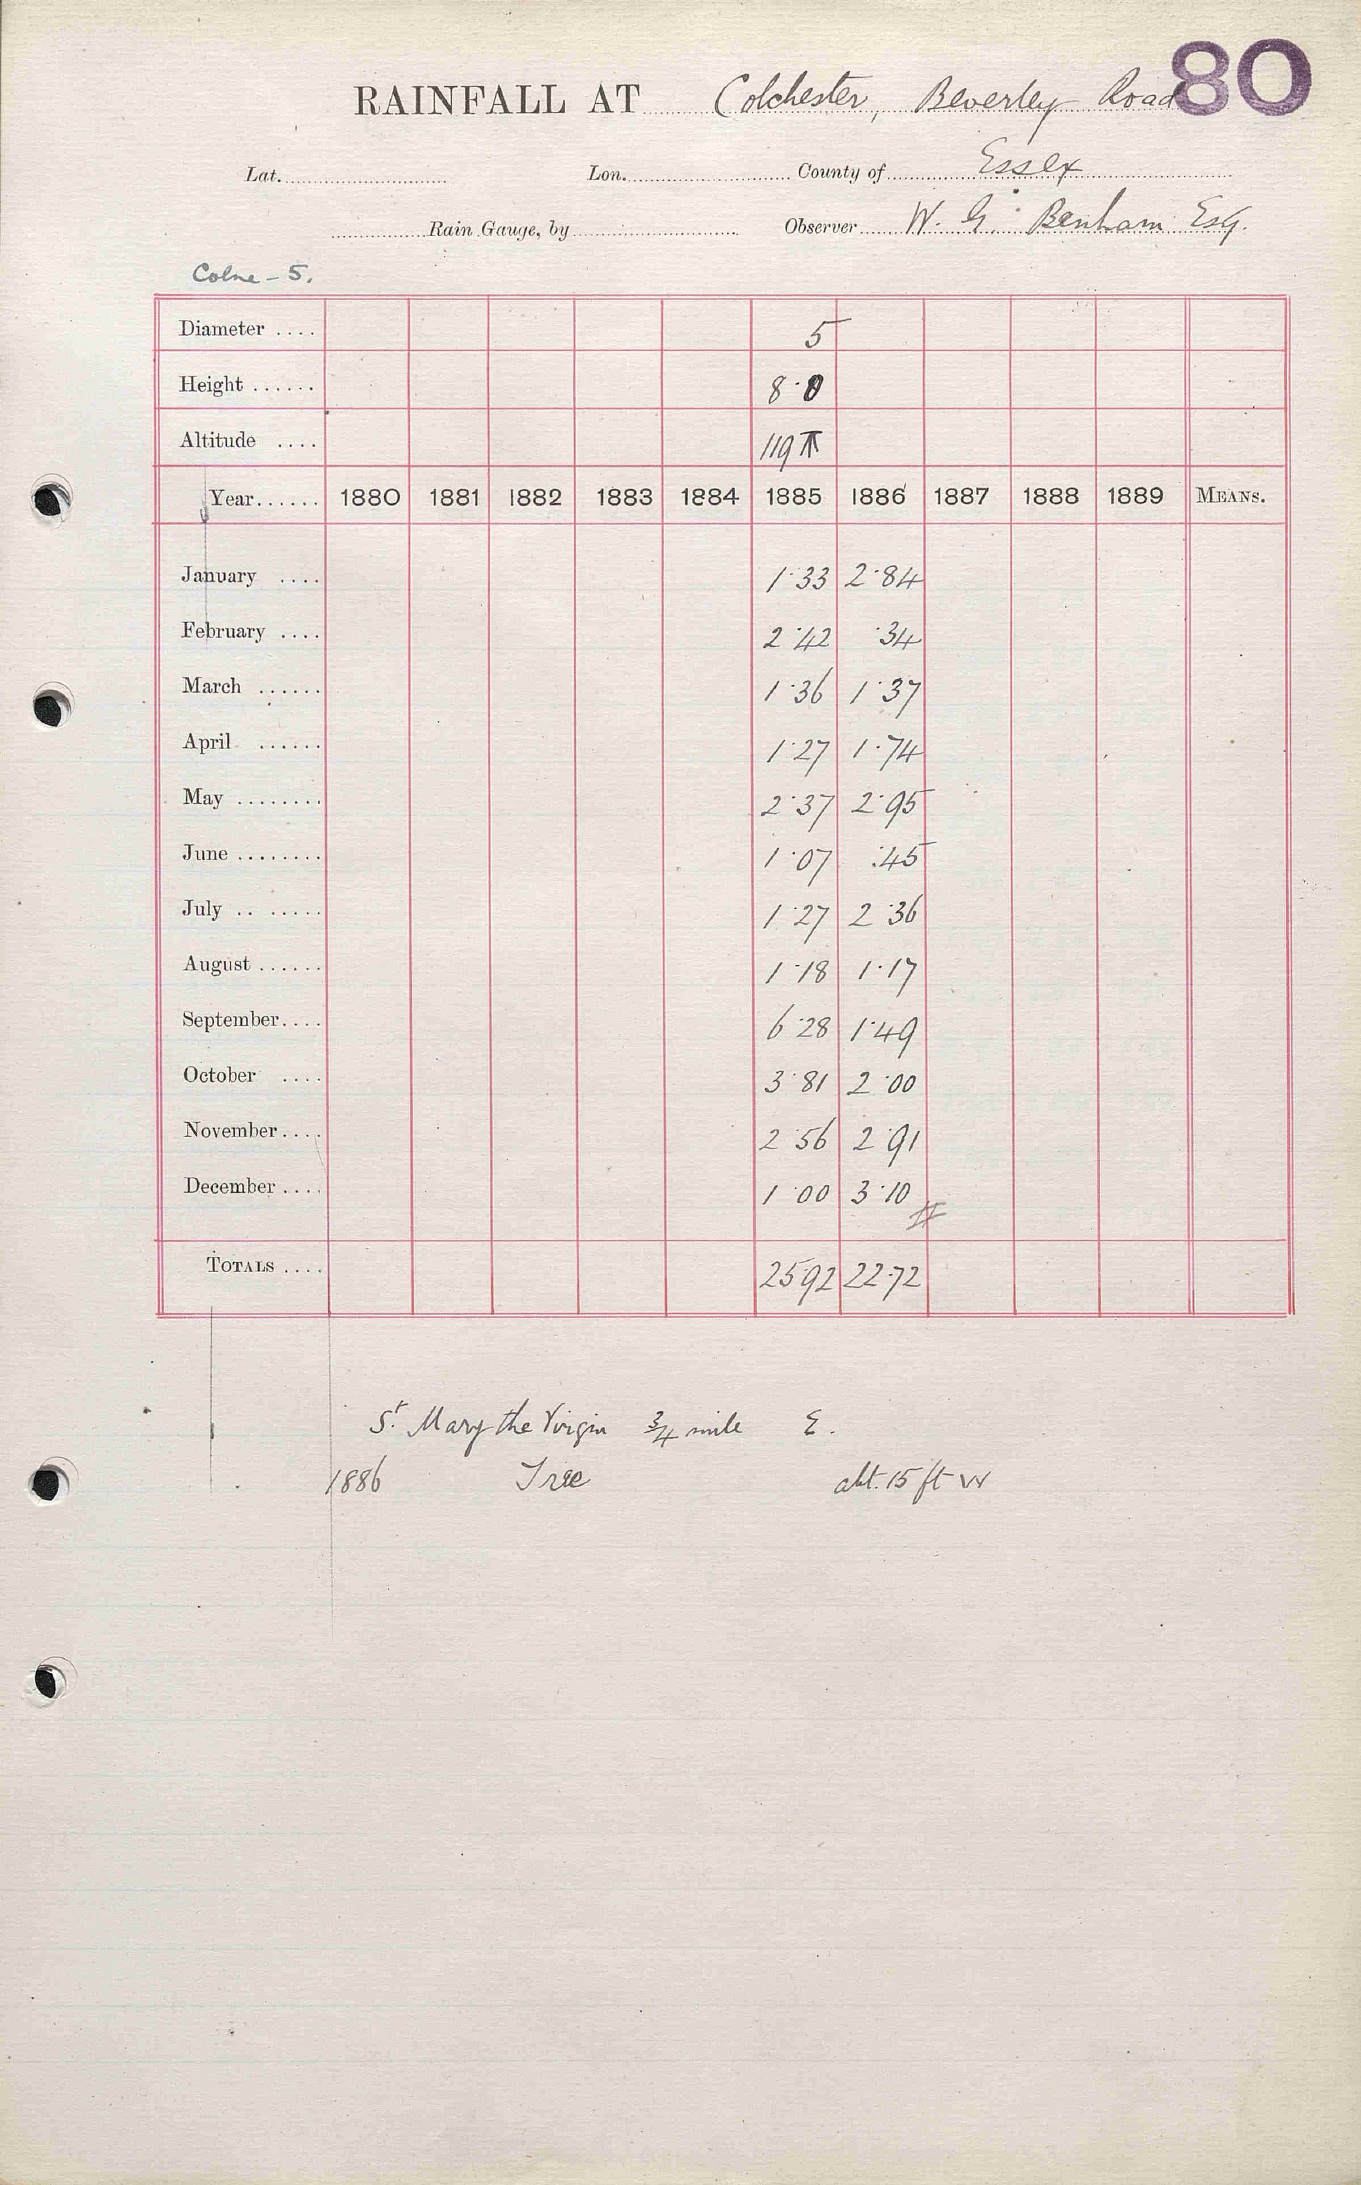 80
RAINFALL AT Colchester, Beverley Road
Lat. Lon. County of Essex
Rain Gauge, by Observer W. G. Benham Esq.
Colne - 5.
Diameter .... 5
Height ...... 8·0
Altitude .... 119 T
Year...... 1880 1881 1882 1883 1884 1885 1886 1887 1888 1889 MEANS.
January .... 1·33 2·84
February .... 2·42 ·34
March ...... 1·36 1·37
April ...... 1·27 1·74
May ........ 2·37 2·95
June ........ 1·07 ·45
July .. ..... 1·27 2·36
August ...... 1·18 1·17
September.... 6·28 1·49
October .... 3·81 2·00
November.... 2·56 2·91
December.... 1·00 3·10
TOTALS .... 25·92 22·72
St. Mary the Virgin 3/4 mile E.
1886 Tree abt. 15 ft W